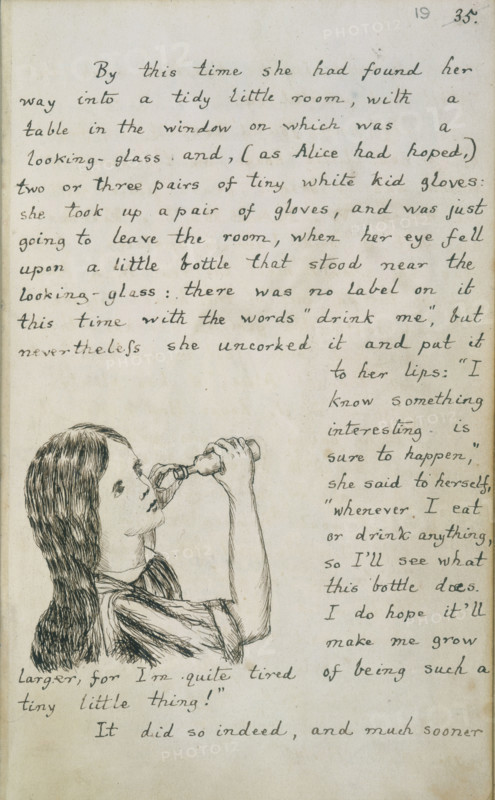 19 35.
By this time she had found her
way into a tidy little room, with a
table in the window on which was a
looking-glass and, (as Alice had hoped,)
two or three pairs of tiny white kid gloves:
she took up a pair of gloves, and was just
going to leave the room, when her eye fell
upon a little bottle that stood near the
looking-glass: there was no label on it
this time with the words "drink me", but
nevertheless she uncorked it and put it
to her lips: "I
know something
interesting is
sure to happen,"
she said to herself,
"whenever I eat
or drink anything,
so I'll see what
this bottle does.
I do hope it'll
make me grow
larger, for I'm quite tired of being such a
tiny little thing!"
It did so indeed, and much sooner
PHOTO12